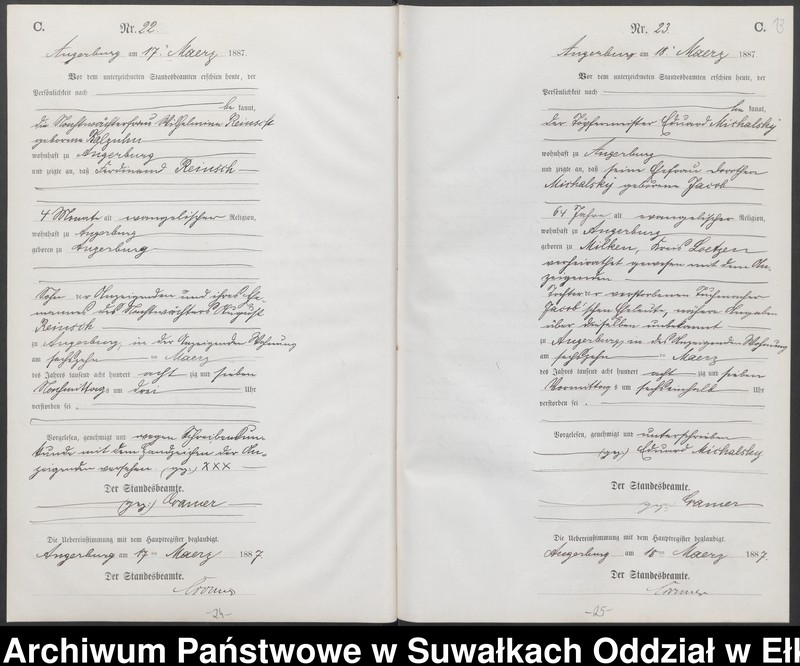 C.
Nr. 22.
Angerburg am 17. Maerz 1887.
Vor dem unterzeichneten Standesbeamten erschien heute, der
Persönlichkeit nach
be kannt,
die Nachtwächterfrau Wilhelmine Reinsch
geborene
wohnhaft zu Angerburg
und zeigte an, daß Ferdinand Reinsch
4 Monate alt evangelischer Religion,
wohnhaft zu Angerburg
geboren zu Angerburg
Sohn der Anzeigenden und ihres Ehe-
mannes des Nachtwächters August
Reinsch
zu Angerburg, in der Anzeigenden Wohnung
am sechszehn ten Maerz
des Jahres tausend acht hundert acht zig und sieben
Nachmittags um drei Uhr
verstorben sei.
Vorgelesen, genehmigt und wegen Schreibensun-
kunde mit dem Handzeichen der An-
zeigenden versehen (gez.) XXX
Der Standesbeamte.
(gez.) Cramer
Die Uebereinstimmung mit dem Hauptregister beglaubigt.
Angerburg am 17 ten Maerz 1887.
Der Standesbeamte.
Cramer
-24-
Nr. 23.
C.
13
Angerburg am 18. Maerz 1887.
Vor dem unterzeichneten Standesbeamten erschien heute, der
Persönlichkeit nach
be kannt,
der Töpfermeister Eduard Michalsky
wohnhaft zu Angerburg
und zeigte an, daß seine Ehefrau Dorothea
Michalsky geborene Jacob
64 Jahre alt evangelischer Religion,
wohnhaft zu Angerburg
geboren zu Milken, Kreis Loetzen
verheirathet gewesen mit dem An-
zeigenden
Tochter der verstorbenen Tuchmacher
Jacob'schen Eheleute, nähere Angaben
über dieselben unbekannt
zu Angerburg, in des Anzeigenden Wohnung
am sechszehn ten Maerz
des Jahres tausend acht hundert acht zig und sieben
Vormittags um sechseinhalb Uhr
verstorben sei.
Vorgelesen, genehmigt und unterschrieben
(gez.) Eduard Michalsky
Der Standesbeamte.
gez. Cramer
Die Uebereinstimmung mit dem Hauptregister beglaubigt.
Angerburg am 18 ten Maerz 1887.
Der Standesbeamte.
Cramer
-25-
Archiwum Państwowe w Suwałkach Oddział w Eł